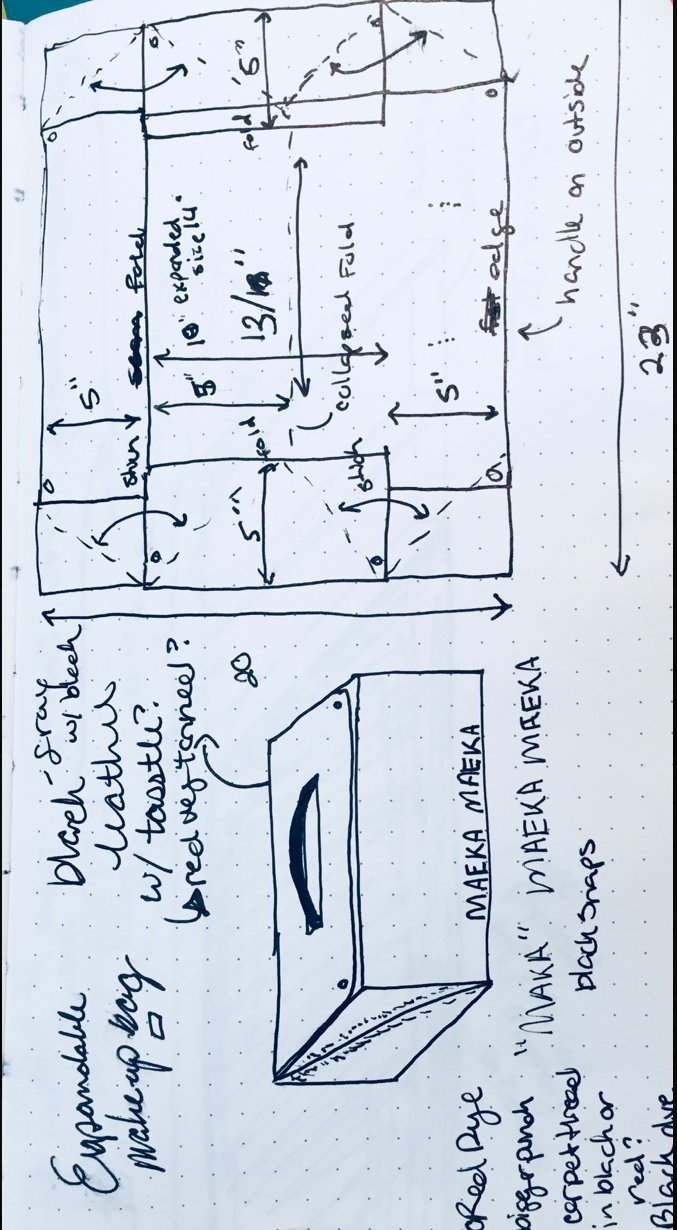 Expandable
makeup bag
black - gray
w/ black
leather
w/ tasstle?
red veg tanned?
20
5"
fold
stitch
10" expanded
size 14"
5"
13/18"
collapsed fold
fold
fold
5"
5"
stich
5"
edge
handle on outside
23"
MAEKA MAEKA
"MAKA" MAEKA MAEKA
black snaps
Red Dye
bigger punch
carpet thread
in black or
red?